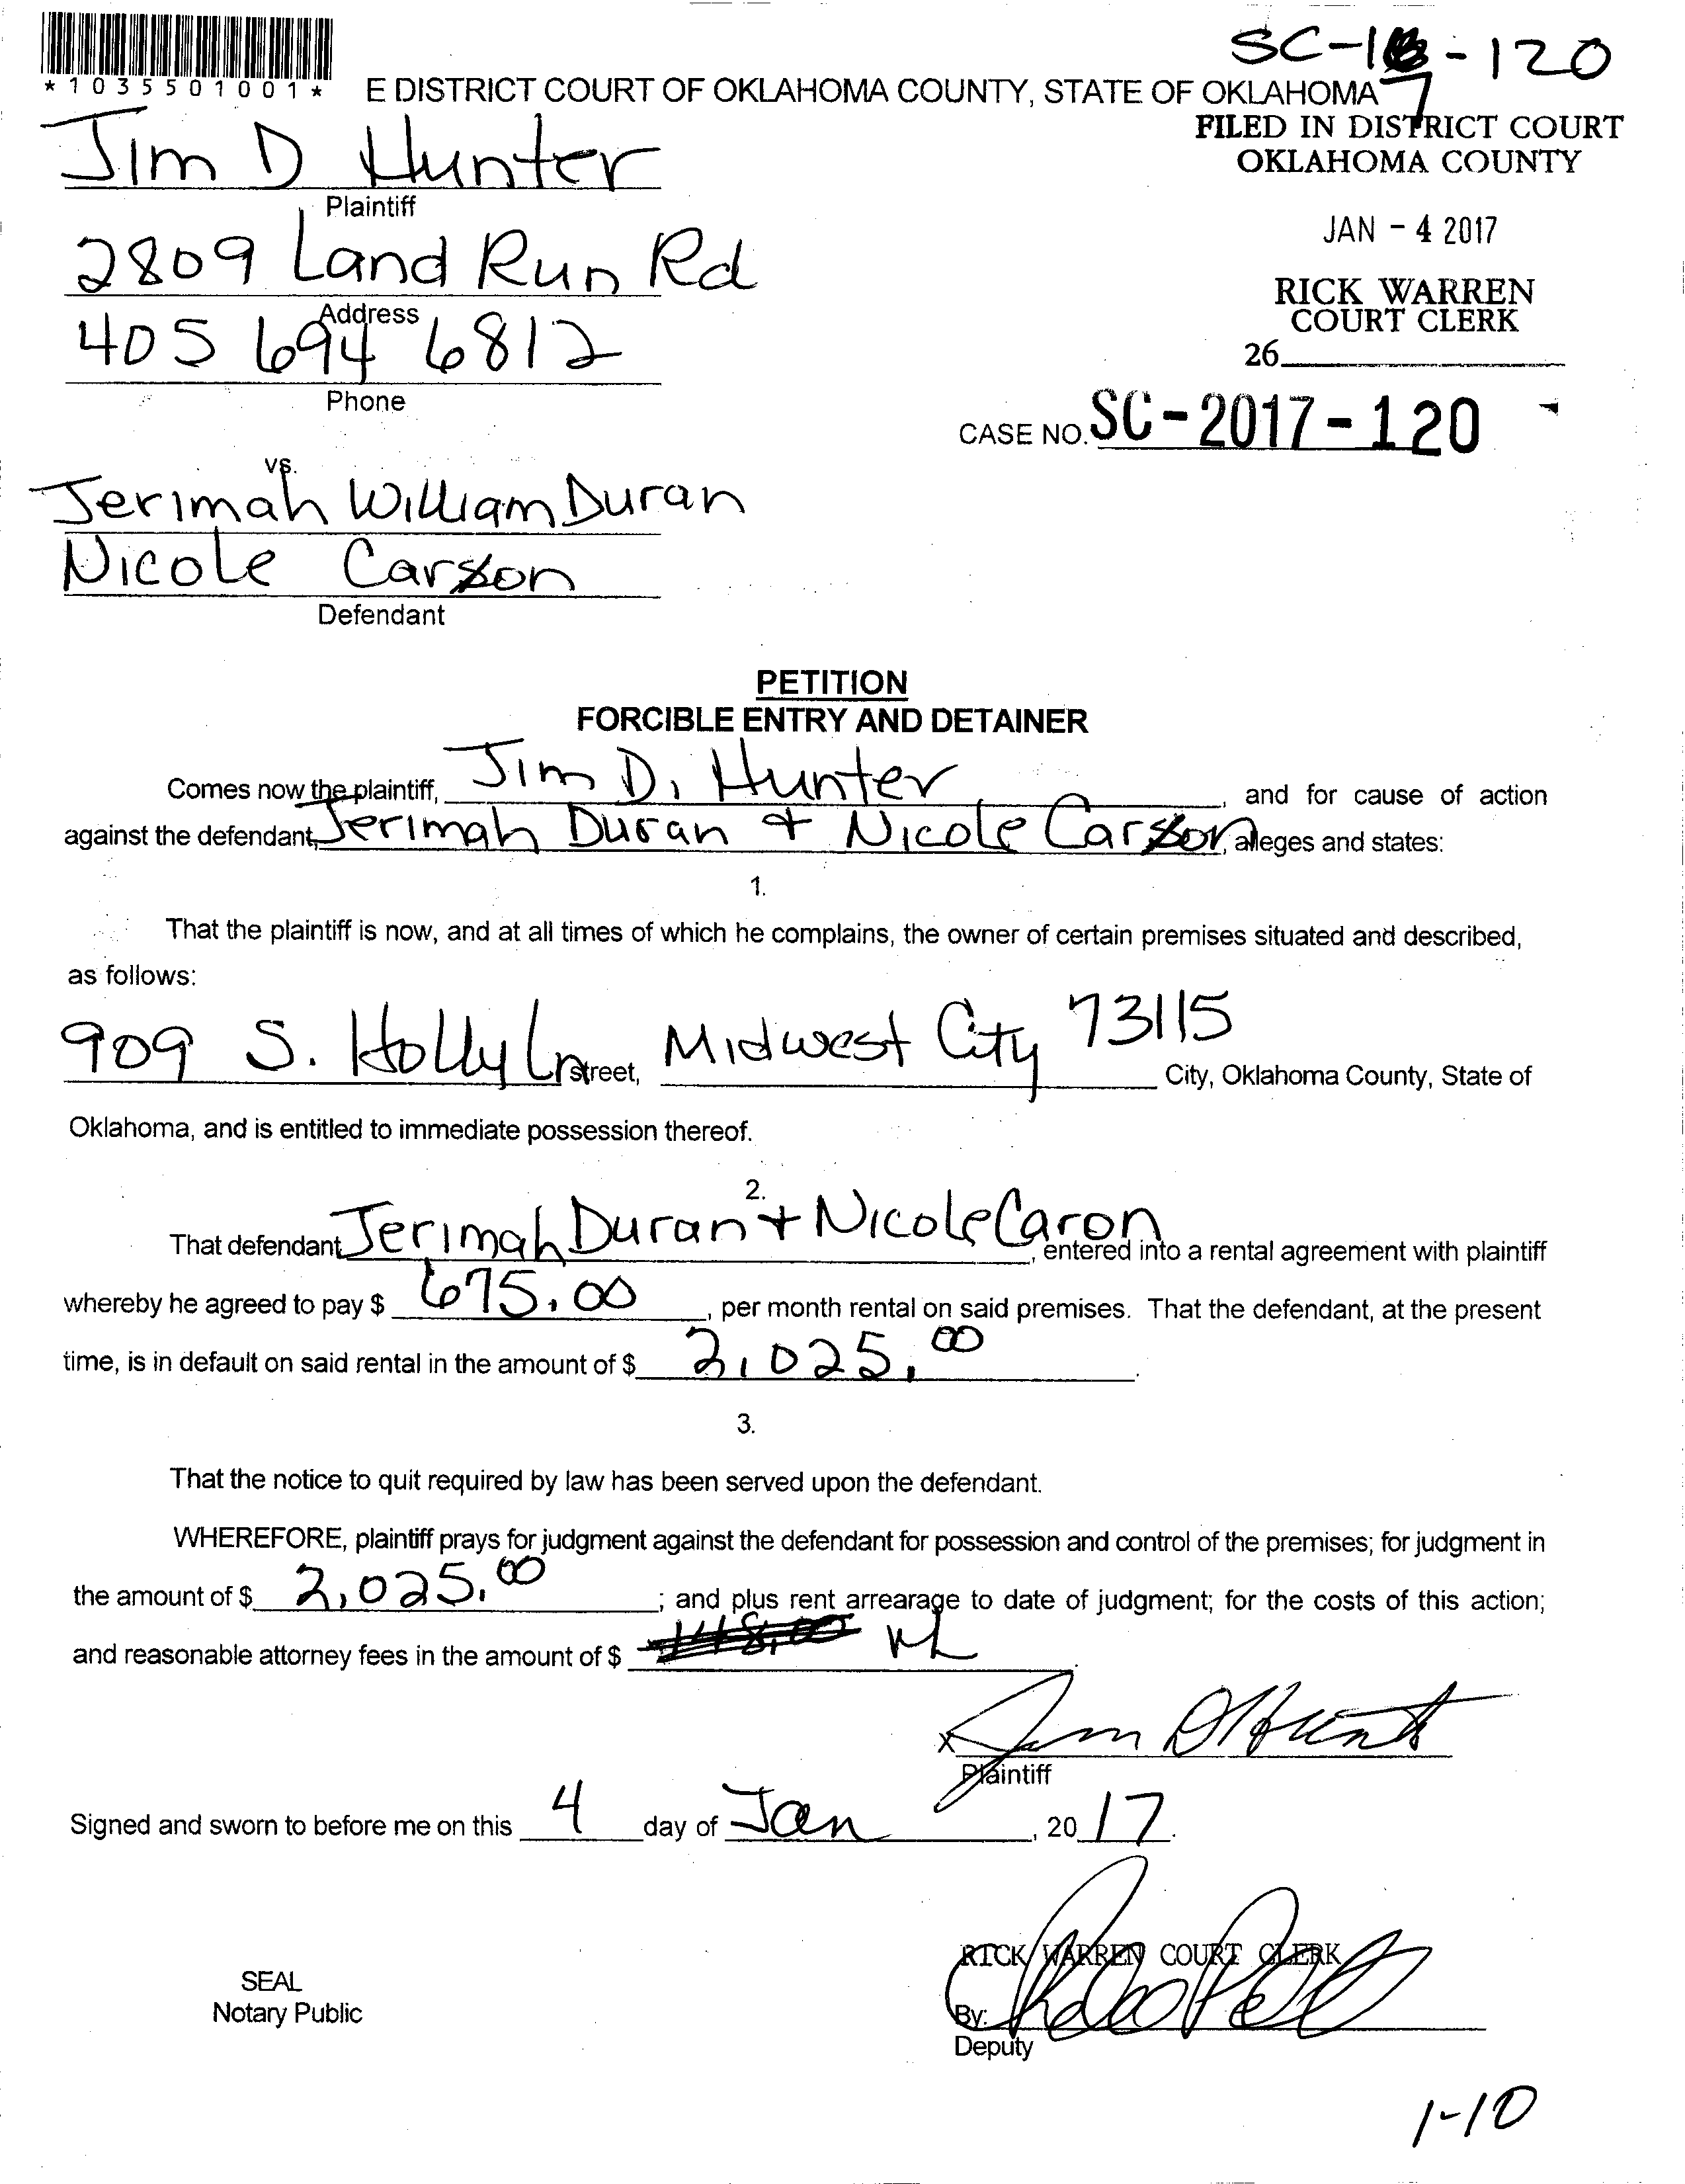 SC-17-120
*1035501001*
E DISTRICT COURT OF OKLAHOMA COUNTY, STATE OF OKLAHOMA
FILED IN DISTRICT COURT
OKLAHOMA COUNTY
Jim D Hunter
Plaintiff
JAN - 4 2017
2809 Land Run Rd
Address
RICK WARREN
COURT CLERK
405 694 6812
Phone
26
CASE NO. SC-2017-120
vs.
Jerimah William Duran
Nicole Caron
Defendant
PETITION
FORCIBLE ENTRY AND DETAINER
Comes now the plaintiff, Jim D. Hunter, and for cause of action
against the defendant, Jerimah Duran + Nicole Caron, alleges and states:
1.
That the plaintiff is now, and at all times of which he complains, the owner of certain premises situated and described,
as follows:
909 S. Holly Ln street, Midwest City 73115 City, Oklahoma County, State of
Oklahoma, and is entitled to immediate possession thereof.
2.
That defendant Jerimah Duran + Nicole Caron, entered into a rental agreement with plaintiff
whereby he agreed to pay $ 675.00, per month rental on said premises. That the defendant, at the present
time, is in default on said rental in the amount of $ 2,025.00.
3.
That the notice to quit required by law has been served upon the defendant.
WHEREFORE, plaintiff prays for judgment against the defendant for possession and control of the premises; for judgment in
the amount of $ 2,025.00; and plus rent arrearage to date of judgment; for the costs of this action;
and reasonable attorney fees in the amount of $
x Jim D Hunter
Plaintiff
Signed and sworn to before me on this 4 day of Jan, 2017.
RICK WARREN COURT CLERK
SEAL
Notary Public
By:
Deputy
1-10